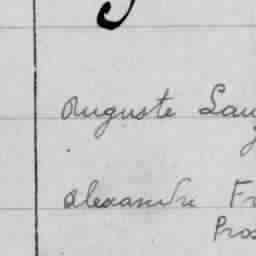 Auguste Lau
Alexandre Fr
Pros